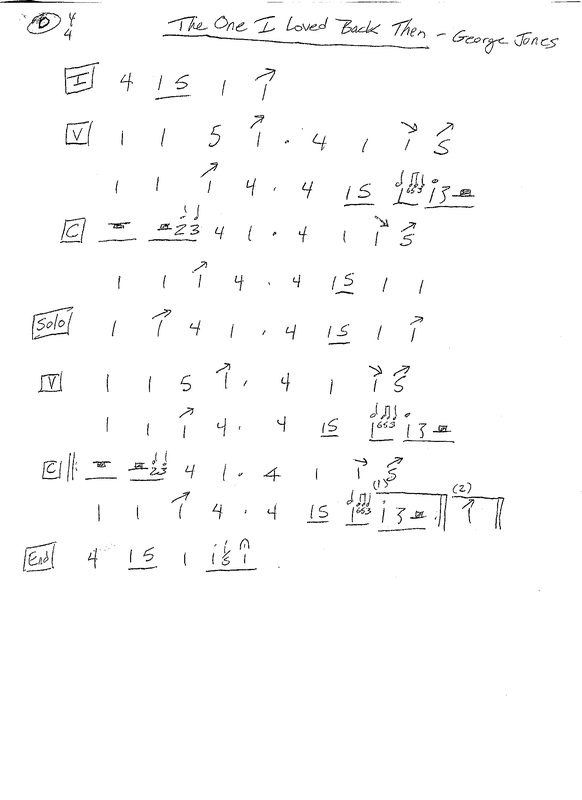 D 4/4 The One I Loved Back Then - George Jones
I 4 1 5 1 1
V 1 1 5 1 . 4 1 1 5
1 1 1 4 . 4 1 5 1 653 1 3
C 2 3 4 1 . 4 1 1 5
1 1 1 4 . 4 1 5 1 1
Solo 1 1 4 1 . 4 1 5 1 1
V 1 1 5 1 . 4 1 1 5
1 1 1 4 . 4 1 5 1 653 1 3
C 2 3 4 1 . 4 1 1 5
1 1 1 4 . 4 1 5 1 653 (1) 1 3 (2) 1
End 4 1 5 1 1 1 5 1